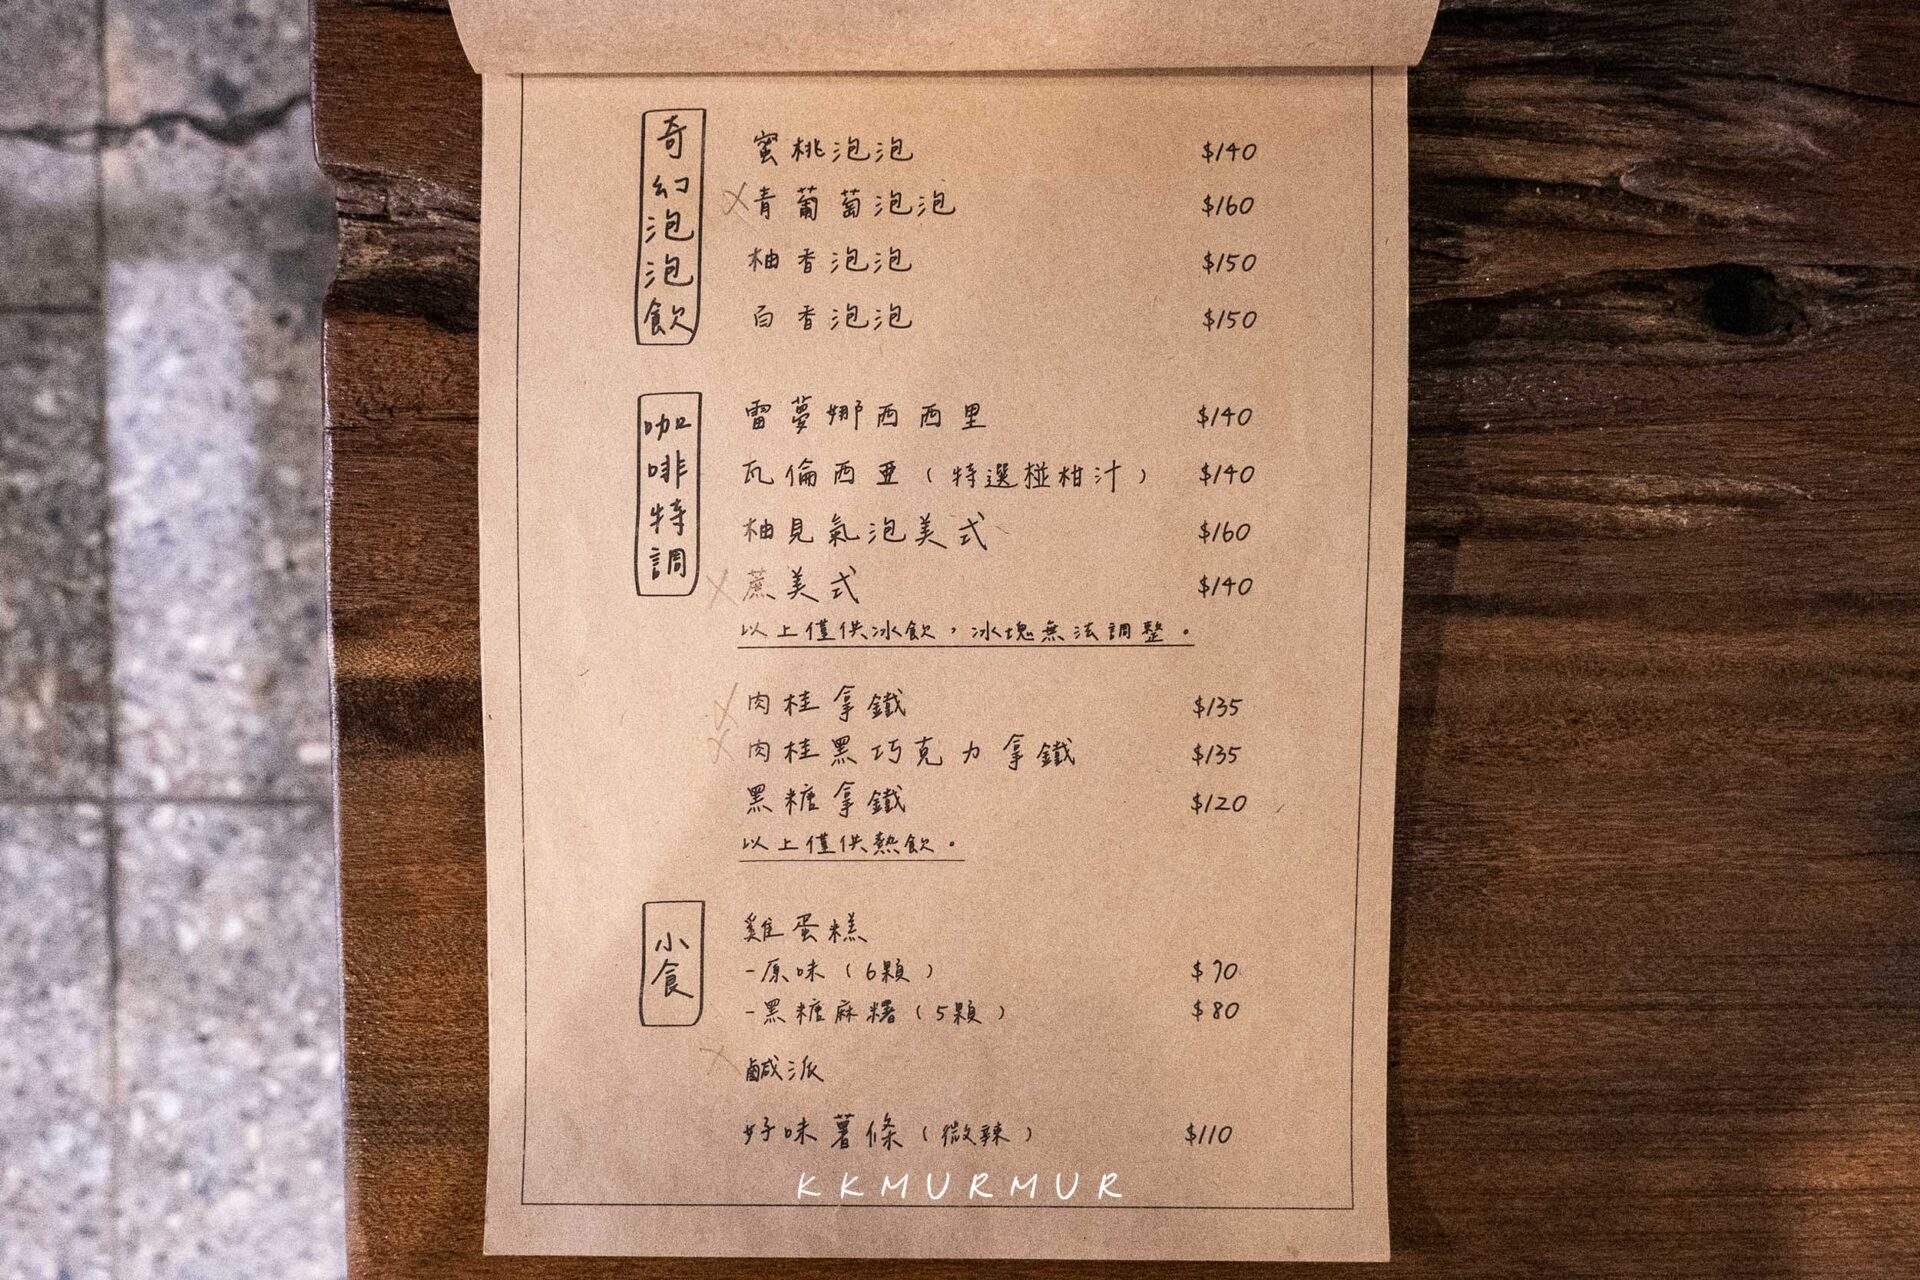 奇幻泡泡飲
蜜桃泡泡 $140
青葡萄泡泡 $160
柚香泡泡 $150
百香泡泡 $150
咖啡特調
雷夢娜西西里 $140
瓦倫西亞(特選椪柑汁) $140
柚見氣泡美式 $160
蔗美式 $140
以上僅供冰飲,冰塊無法調整。
肉桂拿鐵 $135
肉桂黑巧克力拿鐵 $135
黑糖拿鐵 $120
以上僅供熱飲。
小食
雞蛋糕
-原味(6顆) $70
-黑糖麻糬(5顆) $80
鹹派
好味薯條(微辣) $110
KKMURMUR